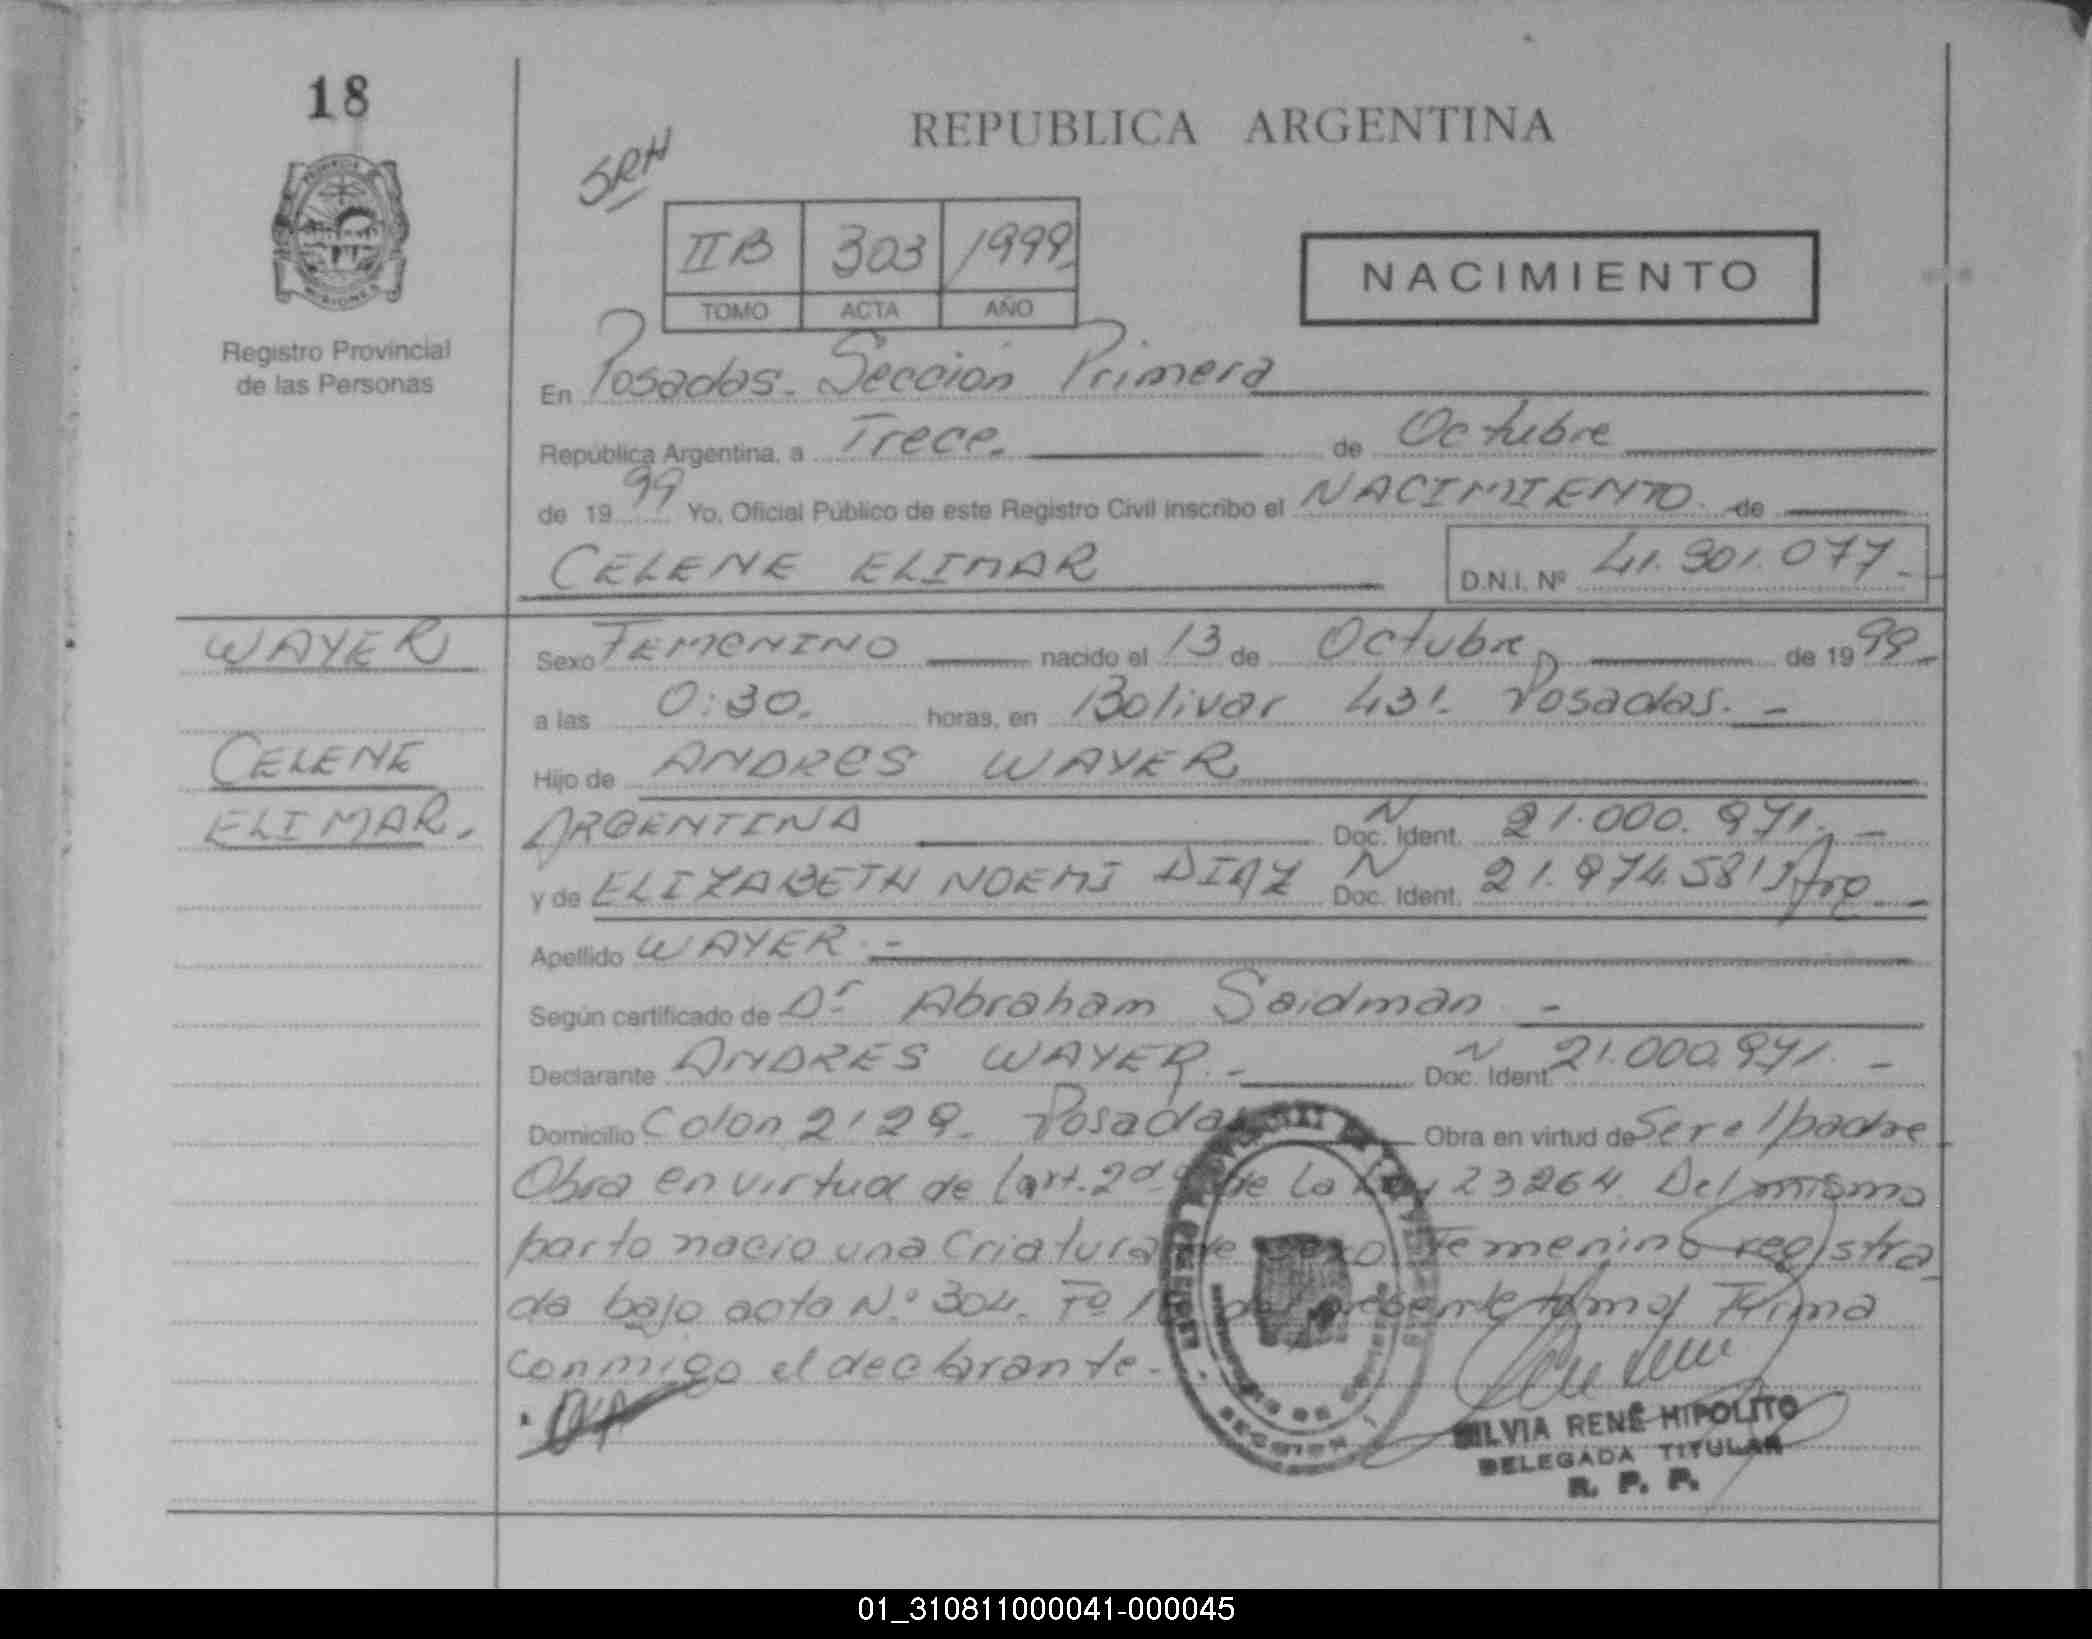 18
REPUBLICA ARGENTINA
SRH
IIB 303 1999
TOMO ACTA AÑO
NACIMIENTO
Registro Provincial
de las Personas
En Posadas. Sección Primera
República Argentina, a Trece. de Octubre
de 1999 Yo, Oficial Público de este Registro Civil inscribo el NACIMIENTO de
CELENE ELIMAR D.N.I. Nº 41.901.077.-
WAYER
CELENE
ELIMAR.
Sexo FEMENINO nacido el 13 de Octubre de 1999.-
a las 0:30. horas, en Bolivar 431. Posadas.-
Hijo de ANDRES WAYER
ARGENTINA N Doc. Ident. 21.000.971.-
y de ELIZABETH NOEMI DIAZ N Doc. Ident. 21.974.581 Arg.-
Apellido WAYER.-
Según certificado de Dr Abraham Saidman -
Declarante ANDRES WAYER.- N Doc. Ident. 21.000.971.-
Domicilio Colon 2129. Posadas Obra en virtud de Ser el padre
Obra en virtud de l art. 2d de la Ley 23264. Del mismo
parto nacio una Criatura de sexo Femenino registra
da bajo acta N.º 304. Fº del presente tomo. Firma
conmigo el declarante.-
SILVIA RENÉ HIPOLITO
DELEGADA TITULAR
R. P. P.
01_310811000041-000045